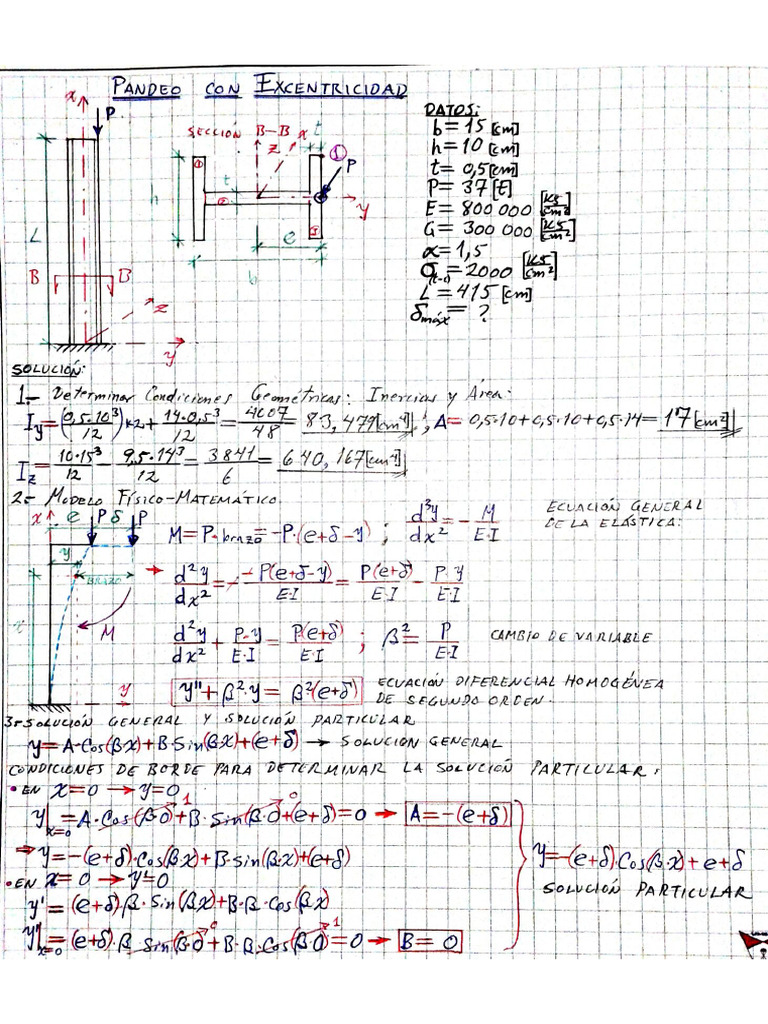 PANDEO CON EXCENTRICIDAD
x
P
L
B B
z
y
SECCIÓN B-B
x
t
z
①
P
h
t
①
②
①
y
e
b
DATOS:
b = 15 [cm]
h = 10 [cm]
t = 0,5 [cm]
P = 37 [t]
E = 800 000 [KG/cm²]
G = 300 000 [KG/cm²]
α = 1,5
σ(t-c) = 2000 [KG/cm²]
L = 415 [cm]
δmáx = ?
SOLUCIÓN:
1.- Determinar Condiciones Geométricas: Inercias y Área:
Iy = (0,5·10³/12)x2 + 14·0,5³/12 = 4007/48 = 83,479[cm⁴]; A = 0,5·10+0,5·10+0,5·14 = 17 [cm²]
Iz = 10·15³/12 - 9,5·14³/12 = 3841/6 = 640,167[cm⁴]
2.- MODELO FÍSICO-MATEMÁTICO
x e P δ P
y
BRAZO
x
M
y
M = P·brazo = -P·(e+δ-y) ; d²y/dx² = - M/E·I
ECUACIÓN GENERAL
DE LA ELÁSTICA:
→ d²y/dx² = - -P(e+δ-y)/E·I = P(e+δ)/E·I - P·y/E·I
d²y/dx² + P·y/E·I = P(e+δ)/E·I ; β² = P/E·I CAMBIO DE VARIABLE
y''+β²·y = β²(e+δ)
ECUACIÓN DIFERENCIAL HOMOGÉNEA
DE SEGUNDO ORDEN.
3.- SOLUCIÓN GENERAL Y SOLUCIÓN PARTICULAR
y = A·Cos(β·x)+B·Sin(β·x)+(e+δ) → SOLUCIÓN GENERAL
CONDICIONES DE BORDE PARA DETERMINAR LA SOLUCIÓN PARTICULAR:
• EN x=0 → y=0
y|x=0 = A·Cos(β·0)¹+B·Sin(β·0)⁰+(e+δ)=0 → A=-(e+δ)
⇒ y = -(e+δ)·Cos(β·x)+B·sin(β·x)+(e+δ)
• EN x=0 → y'=0
y' = (e+δ)·β·Sin(βx)+B·β·Cos(βx)
y'|x=0 = (e+δ)·β·Sin(β·0)⁰+B·β·Cos(β·0)¹=0 → B=0
y=-(e+δ)·Cos(β·x)+e+δ
SOLUCIÓN PARTICULAR